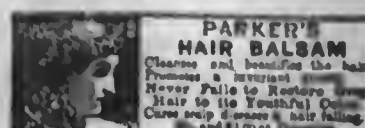 PARKER'S
HAIR BALSAM
Cleanses and beautifies the hair
Promotes a luxuriant
Never Fails to Restore
Hair to its Youthful
Cures scalp diseases hair falling
and